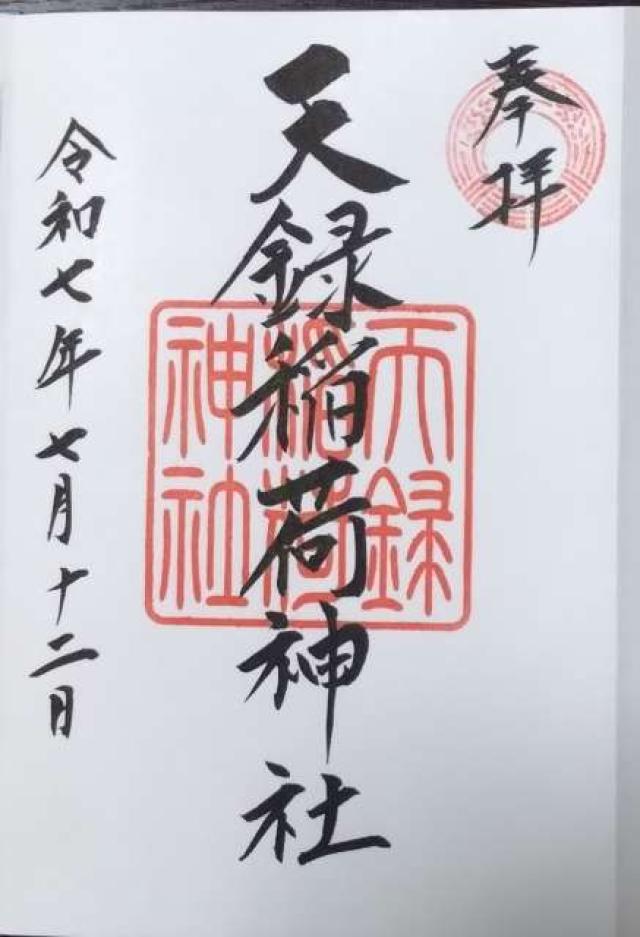 奉拝
天録稲荷神社
天録稲荷神社
令和七年七月十二日